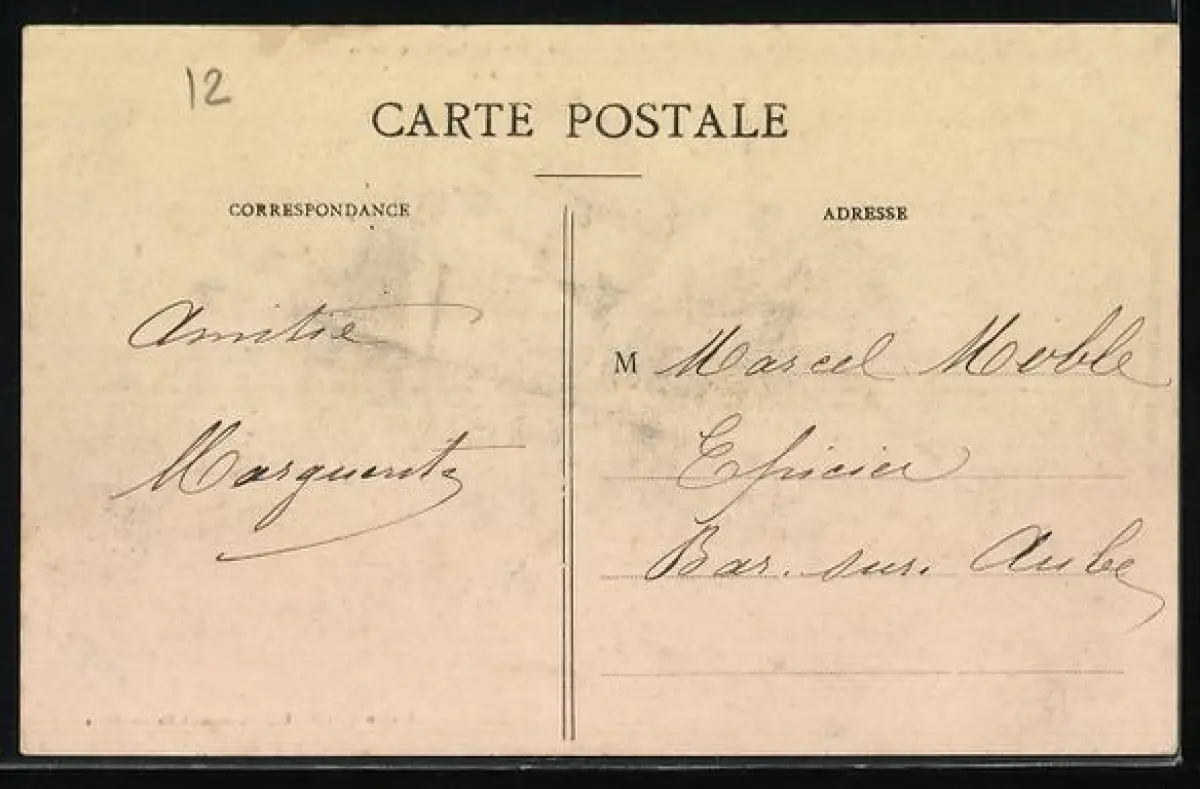 12
CARTE POSTALE
CORRESPONDANCE
ADRESSE
Amitié
Marguerite
M Marcel Moble
Epicier
Bar. sur. Aube